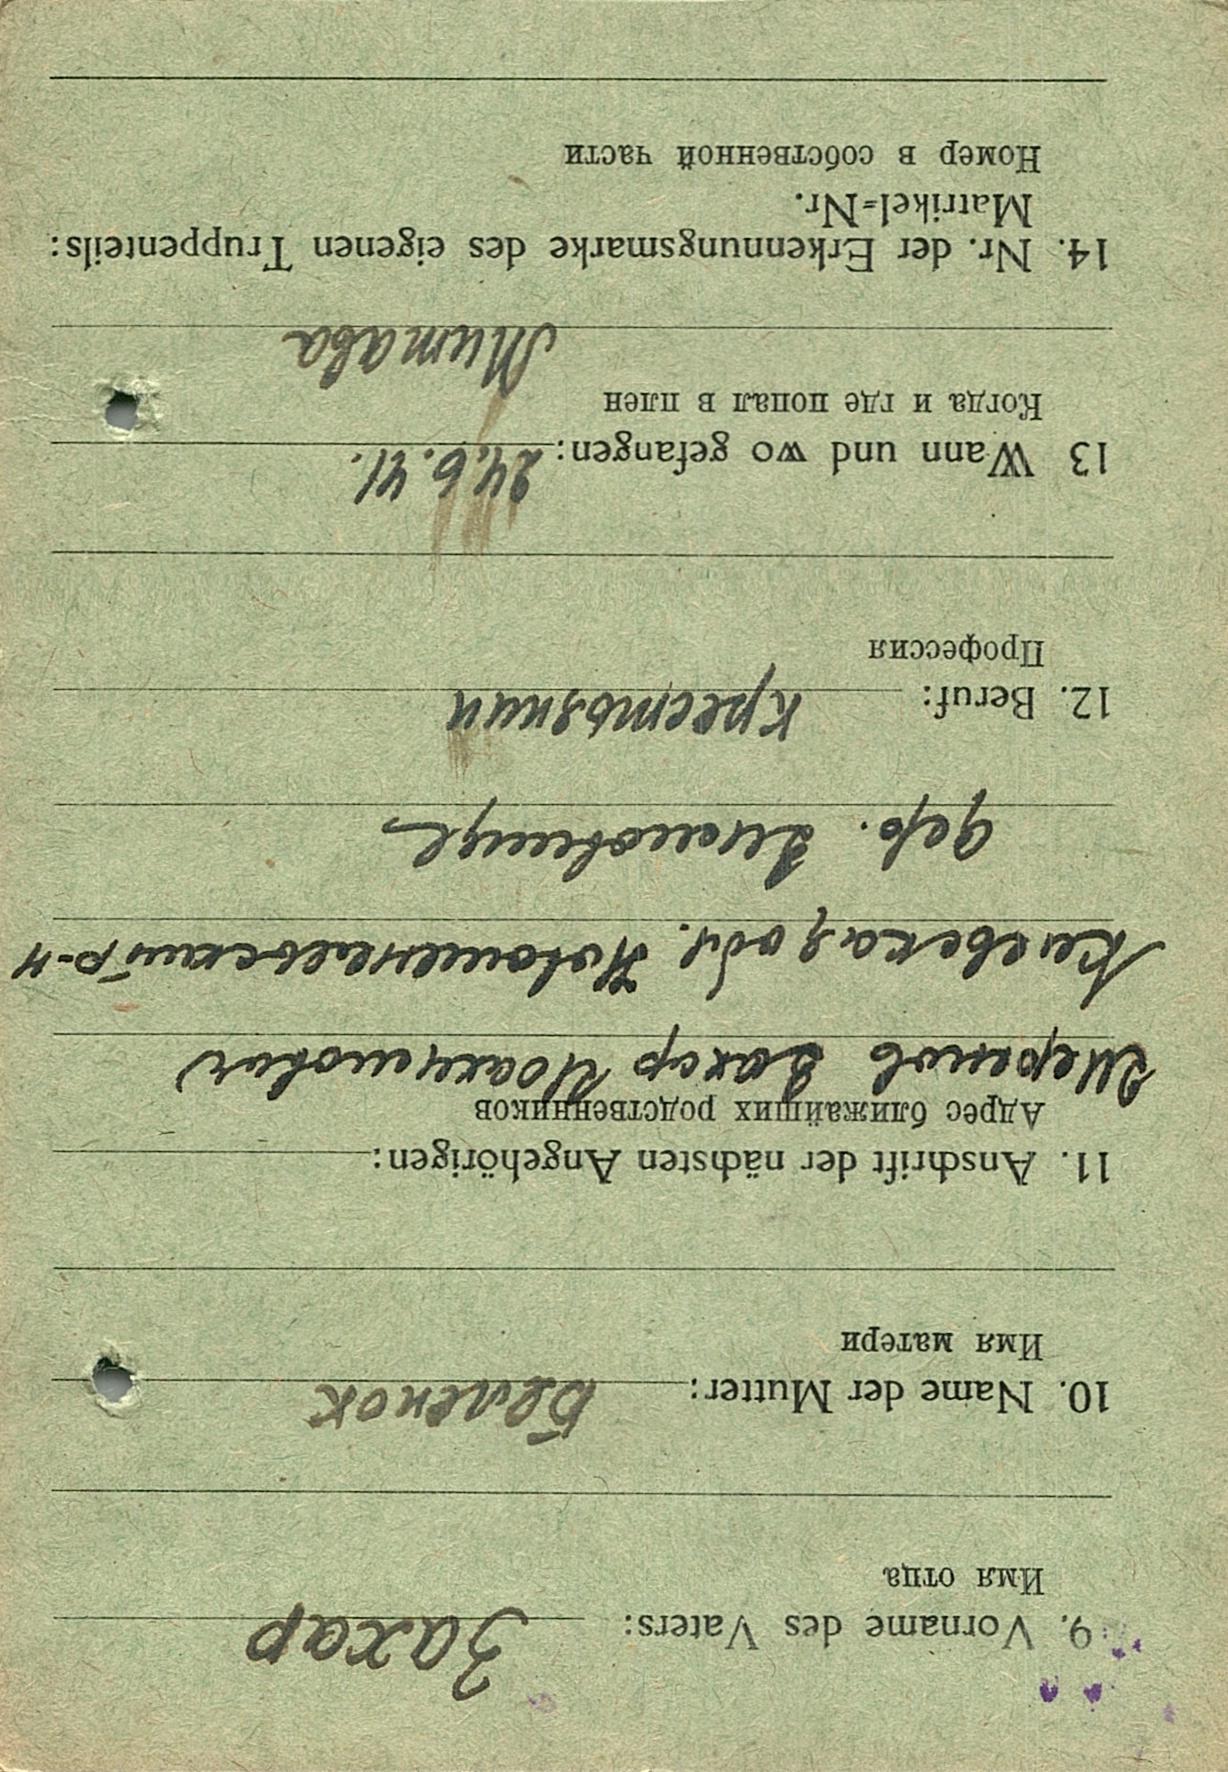 9. Vorname des Vaters: Захар
Имя отца
10. Name der Mutter: Беленок
Имя матери
11. Anschrift der nächsten Angehörigen:
Адрес ближайших родственников
Захар
Киевская обл. р-н
дер.
12. Beruf: крестьянин
Профессия
13 Wann und wo gefangen: 24.6.41.
Когда и где попал в плен
Митава
14. Nr. der Erkennungsmarke des eigenen Truppenteils:
Matrikel=Nr.
Номер в собственной части